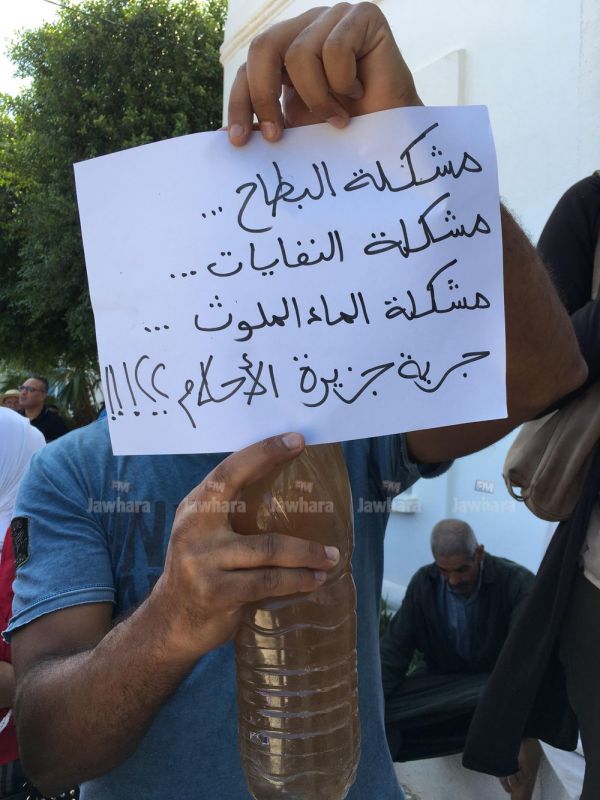 مشكلة البطاح ...
مشكلة النفايات ...
مشكلة الماء الملوث ...
جربة جزيرة الأحلام ؟؟!!!
FM FM FM FM
Jawhara Jawhara Jawhara Jawhara